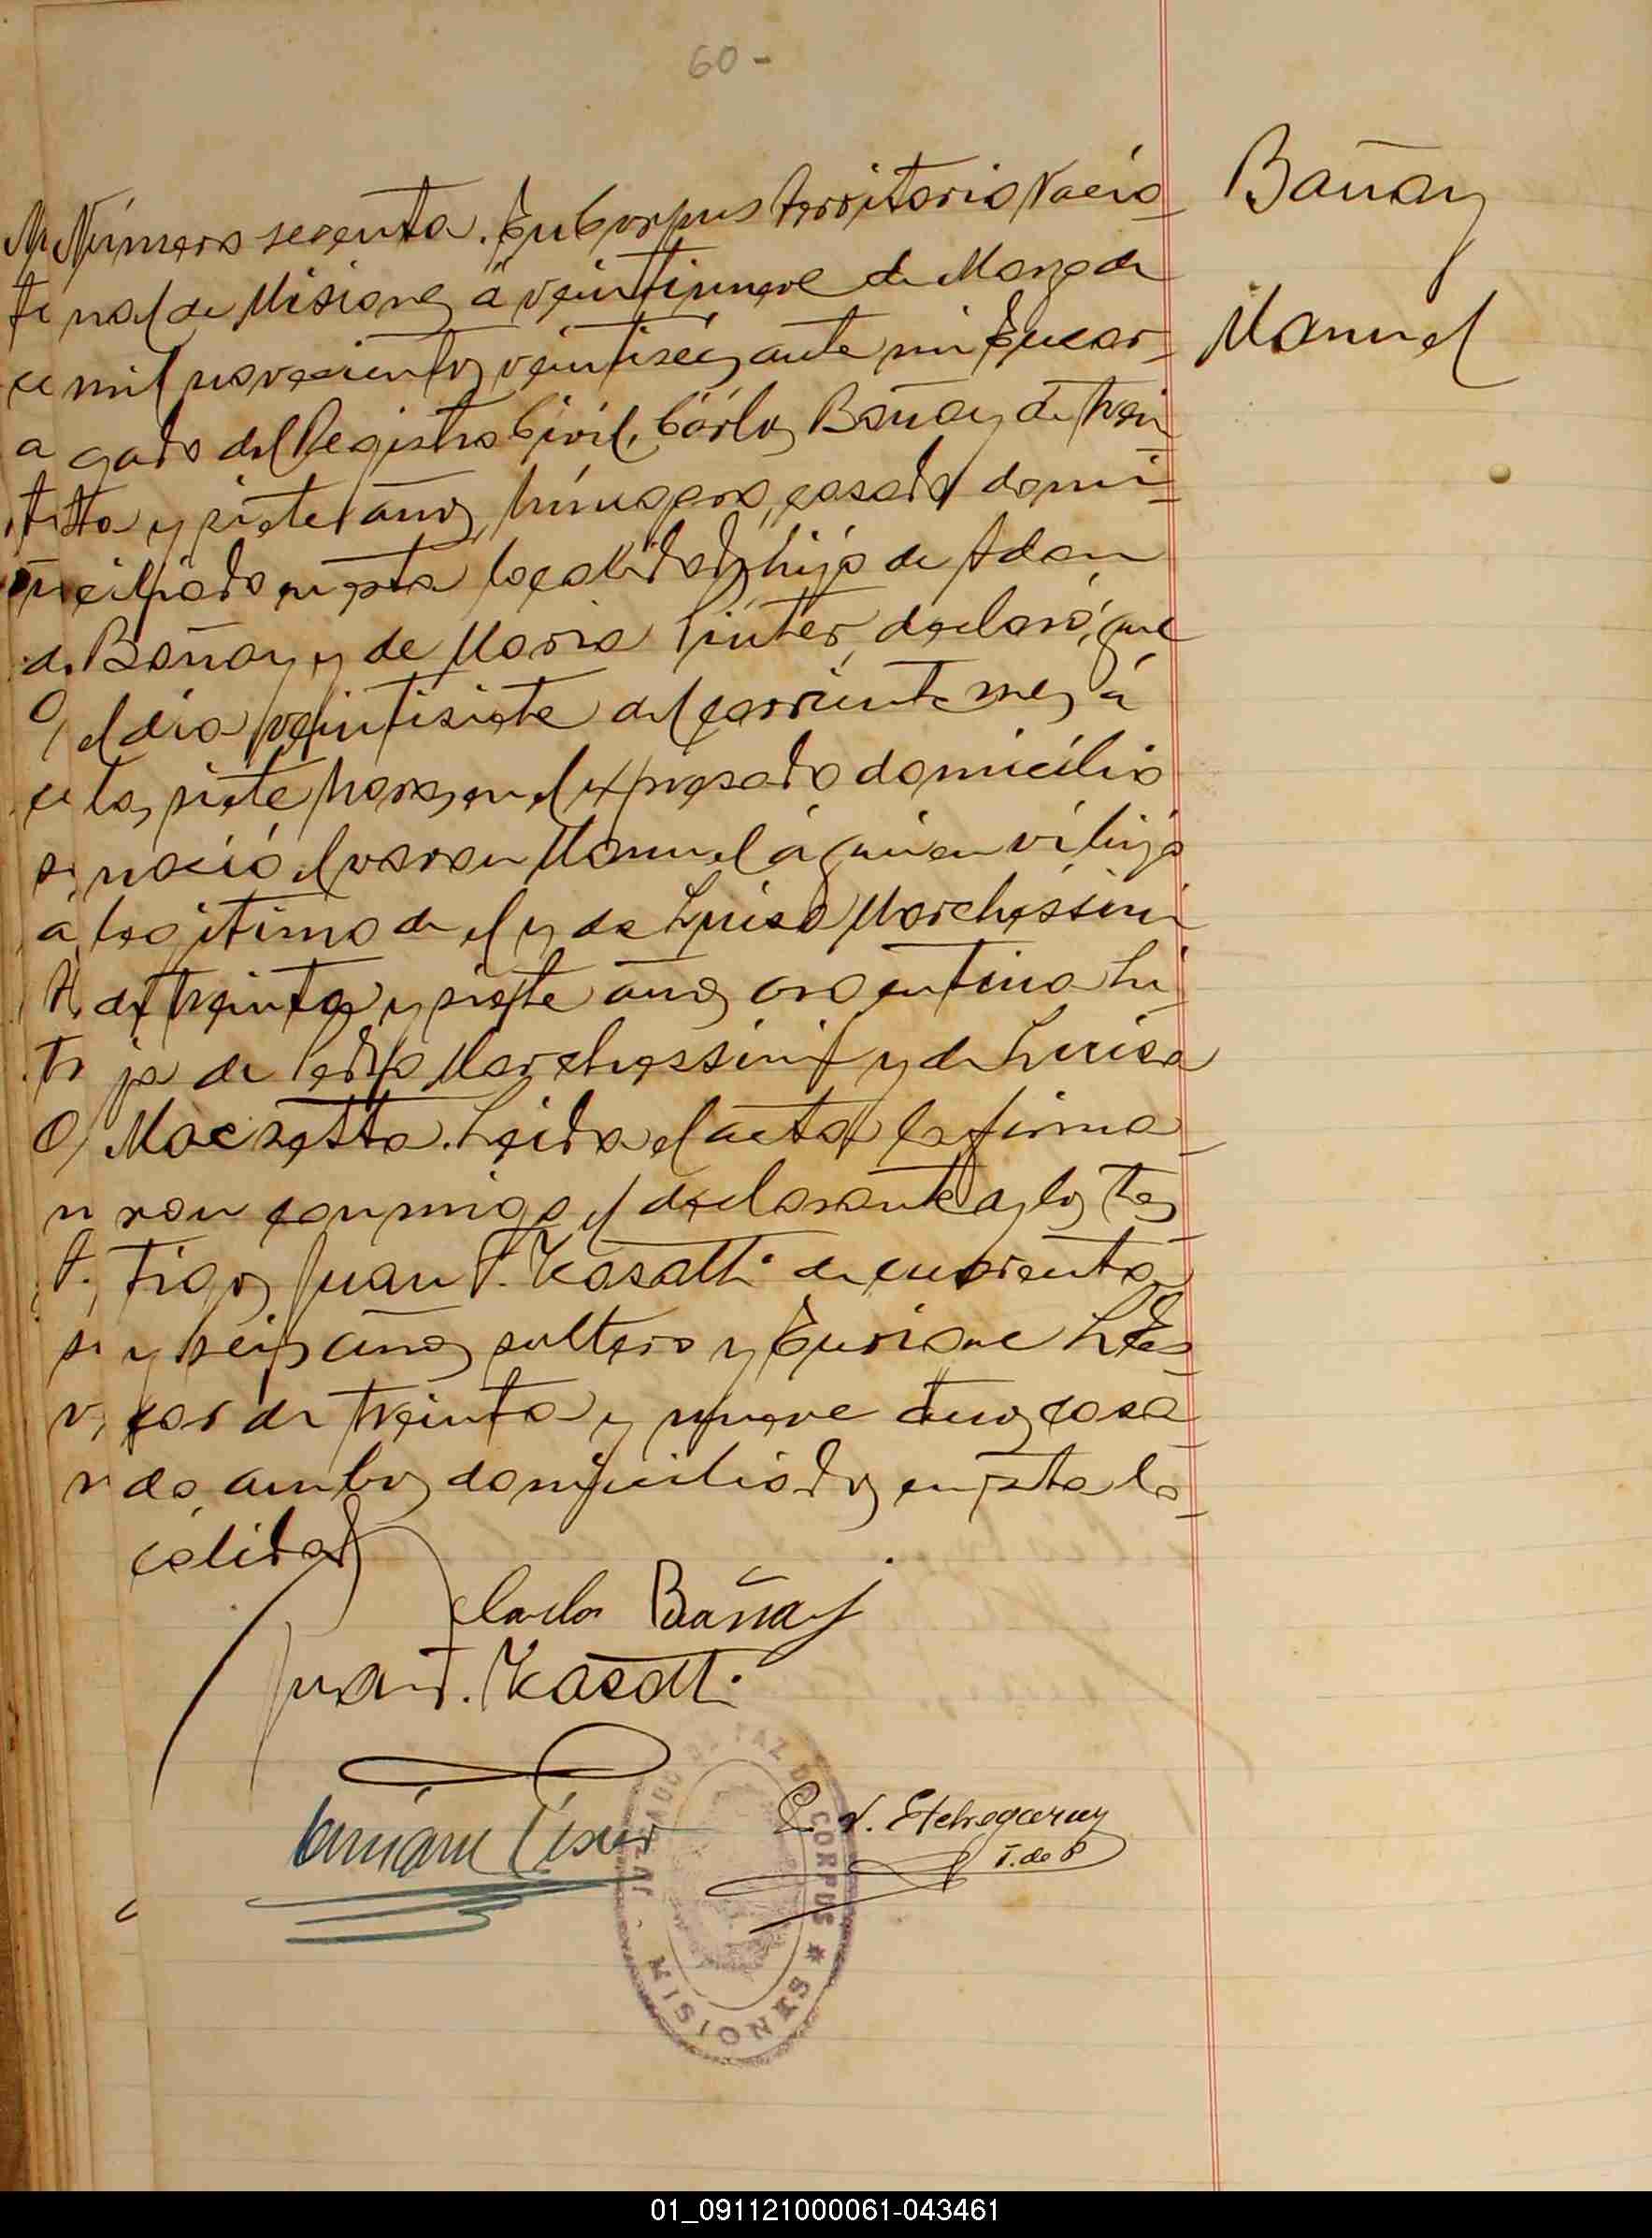 60-
Bañay
Manuel
Número sesenta. En Corpus Territorio Nacio-
nal de Misiones, á veintinueve de Marzo de
mil novecientos veintiseis ante mi Encar-
gado del Registro Civil, Cárlos Bañay de trein
ta y siete años, húngaro, casado domi-
ciliado en esta localidad, hijo de Adan
Bañay y de Maria Pinter, declaró, que
el dia veintisiete del corriente mes á
las siete horas, en el expresado domicilio
nació el varon Manuel á quien ví hijo
legitimo de el y de Luisa Marchessini
de treinta y siete años argentina hi
ja de Pedro Marchessini y de Luisa
Leida el acta la firma-
ron conmigo el declarante y los tes-
tigos Juan T. Kasatti de cuarenta
y seis años soltero y Enrique
de treinta y nueve años casa-
do, ambos domiciliados en esta lo-
calidad
Carlos Bañay
Juan T. Kasatti
E. V. Etchegaray
J. de P
JUZGADO DE PAZ DE CORPUS * MISIONES
01_091121000061-043461